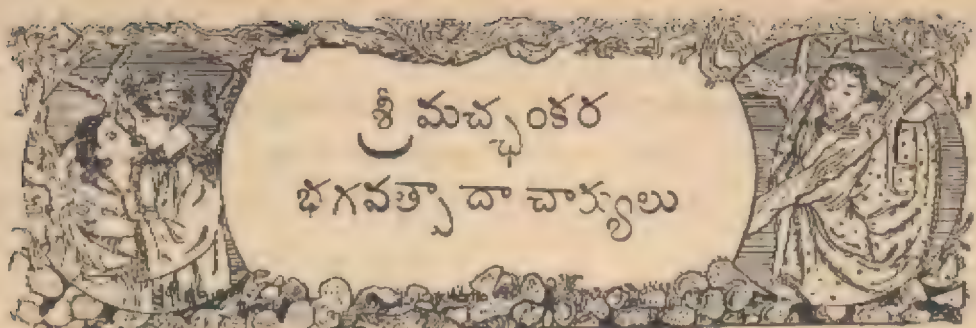 శ్రీ మచ్ఛంకర
భగవత్పాదాచార్యులు